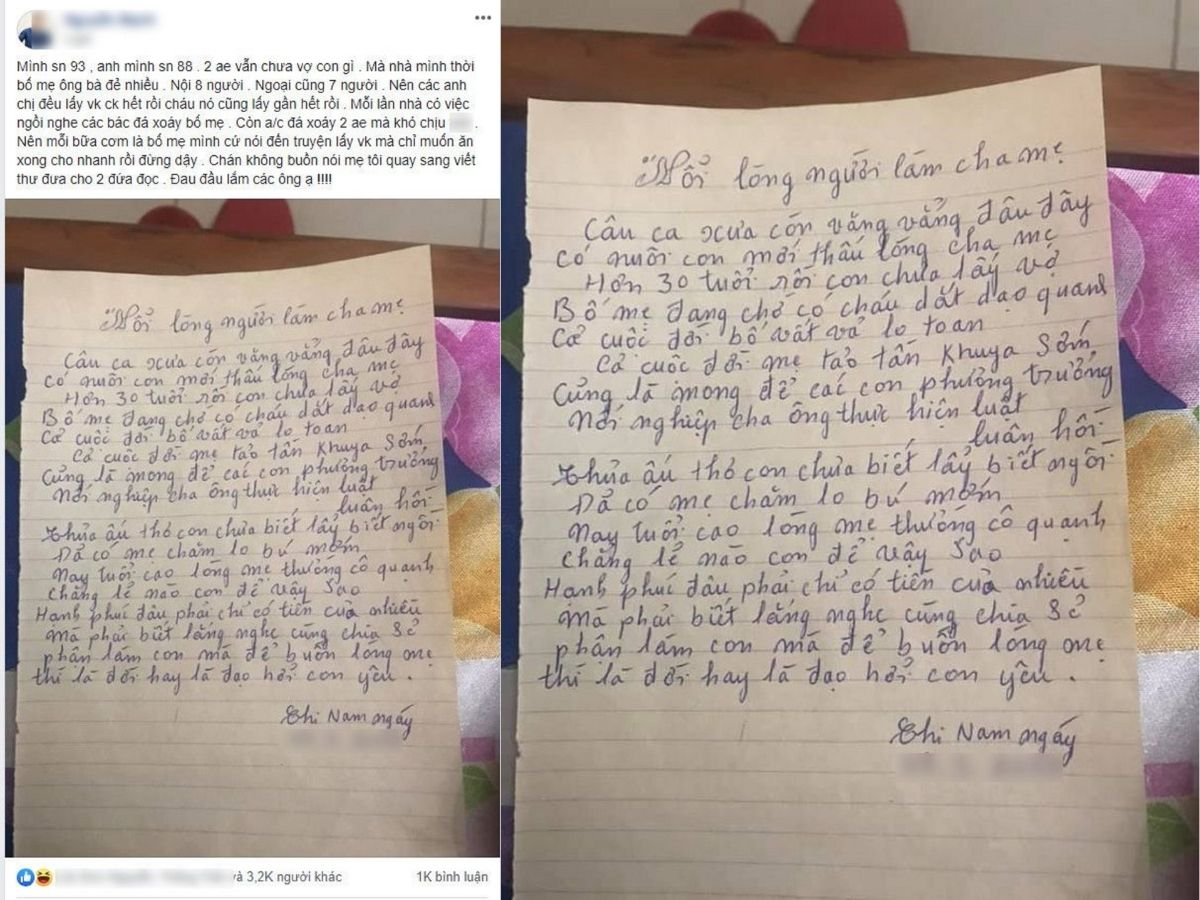 Mình sn 93 , anh mình sn 88 . 2 ae vẫn chưa vợ con gì . Mà nhà mình thời
bố mẹ ông bà đẻ nhiều . Nội 8 người . Ngoại cũng 7 người . Nên các anh
chị đều lấy vk ck hết rồi cháu nó cũng lấy gần hết rồi . Mỗi lần nhà có việc
ngồi nghe các bác đá xoáy bố mẹ . Còn a/c đá xoáy 2 ae mà khó chịu .
Nên mỗi bữa cơm là bố mẹ mình cứ nói đến truyện lấy vk mà chỉ muốn ăn
xong cho nhanh rồi đừng dậy . Chán không buồn nói mẹ tôi quay sang viết
thư đưa cho 2 đứa đọc . Đau đầu lắm các ông ạ !!!!
Nổi lòng người lám cha mẹ
Câu ca xưa cón văng vẳng đâu đây
Có nuôi con mới thấu lòng cha mẹ
Hơn 30 tuổi rồi con chưa lấy vợ
Bố mẹ đang chớ có cháu dắt dạo quanh
Cả cuộc đời bố vất vả lo toan
Cả cuộc đời mẹ tảo tần khuya sớm
Củng lá mong để caí con phương trưởng
Nơi nghiệp cha ông thực hiện luật
luân hồi
Thủa ấu thơ con chưa biết lẩy biết ngồi
Đả có mẹ chăm lo bú mớm
Nay tuổi cao lòng mẹ thường cô quạnh
Chẳng lẻ nào con để vậy sao
Hạnh phúc đâu phải chỉ có tiền cuả nhiều
Mà phải biết lắng nghe cùng chia sẻ
phận lám con mà để buồn lòng mẹ
thì là đời hay là đạo hởi con yêu .
Thi Nam ngáy
Nổi lòng người lám cha mẹ
Câu ca xưa cón văng vẳng đâu đây
Có nuôi con mới thấu lòng cha mẹ
Hơn 30 tuổi rồi con chưa lấy vợ
Bố mẹ đang chớ có cháu dắt dạo quanh
Cả cuộc đời bố vất vả lo toan
Cả cuộc đời mẹ tảo tần khuya sớm
Củng lá mong để caí con phương trưởng
Nơi nghiệp cha ông thực hiện luật
luân hồi
Thủa ấu thơ con chưa biết lẩy biết ngồi
Đả có mẹ chăm lo bú mớm
Nay tuổi cao lòng mẹ thường cô quạnh
Chẳng lẻ nào con để vậy sao
Hạnh phúc đâu phải chỉ có tiền cuả nhiều
Mà phải biết lắng nghe cùng chia sẻ
phận lám con mà để buồn lòng mẹ
thì là đời hay là đạo hởi con yêu .
Thi Nam ngáy
và 3,2K người khác 1K bình luận